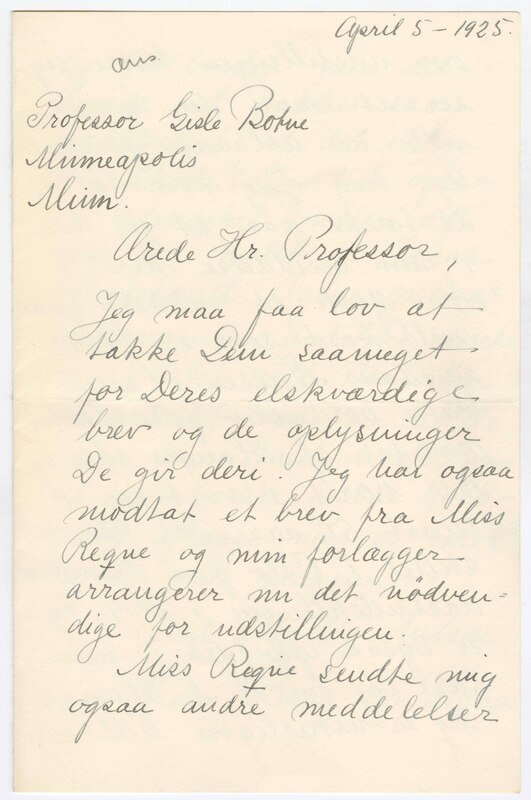 April 5 - 1925.
ans
Professor Gisle Bothne
Minneapolis
Minn.
Ærede Hr. Professor,
Jeg maa faa lov at
takke Dem saameget
for Deres elskværdige
brev og de oplysninger
De gir deri. Jeg har ogsaa
modtat et brev fra Miss
Reque og min forlægger
arrangerer nu det nödven-
dige for udstillingen.
Miss Reque sendte mig
ogsaa andre meddelelser